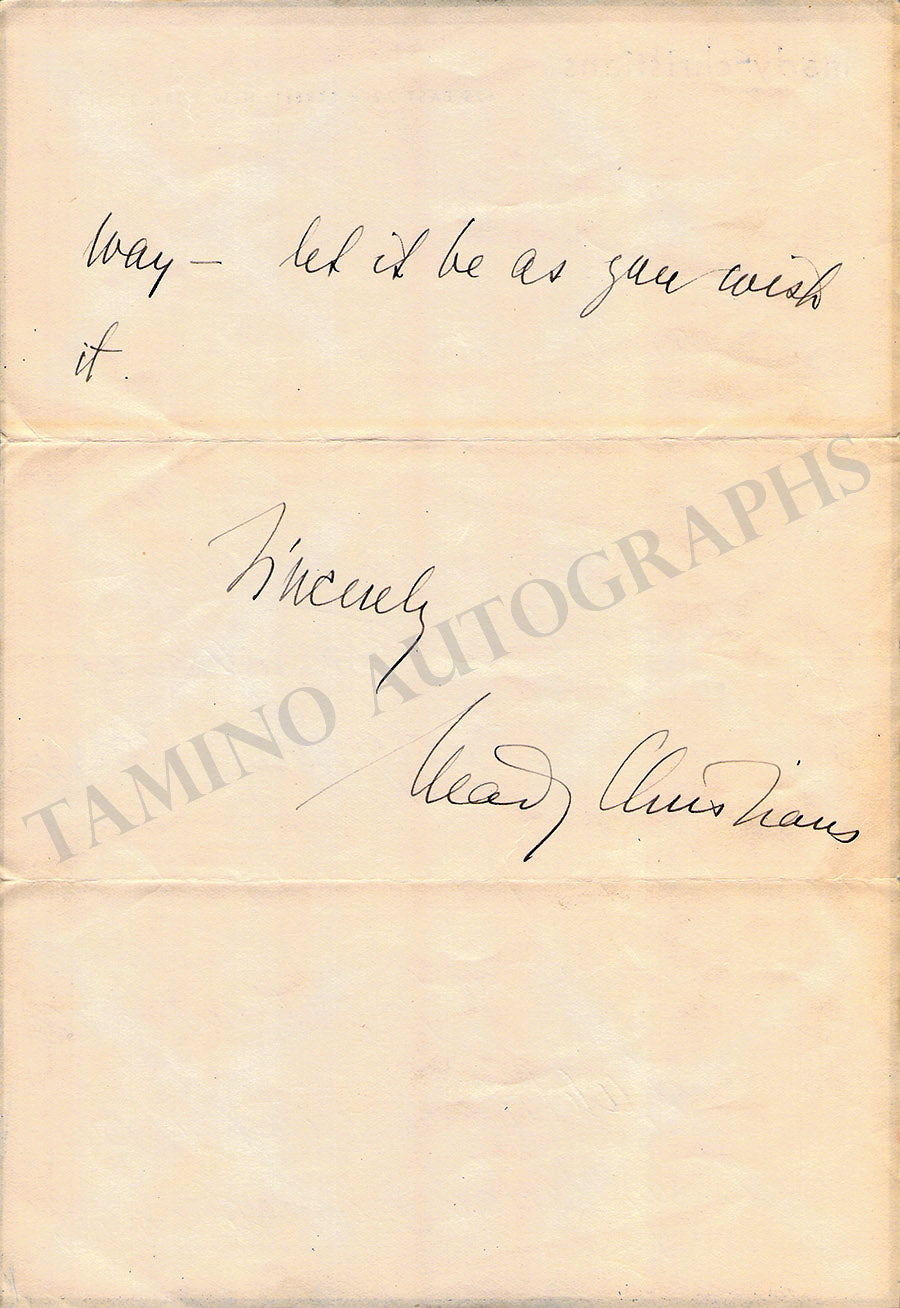 mady christians
way – let it be as you wish
it.
Sincerely
Mady Christians
TAMINO AUTOGRAPHS